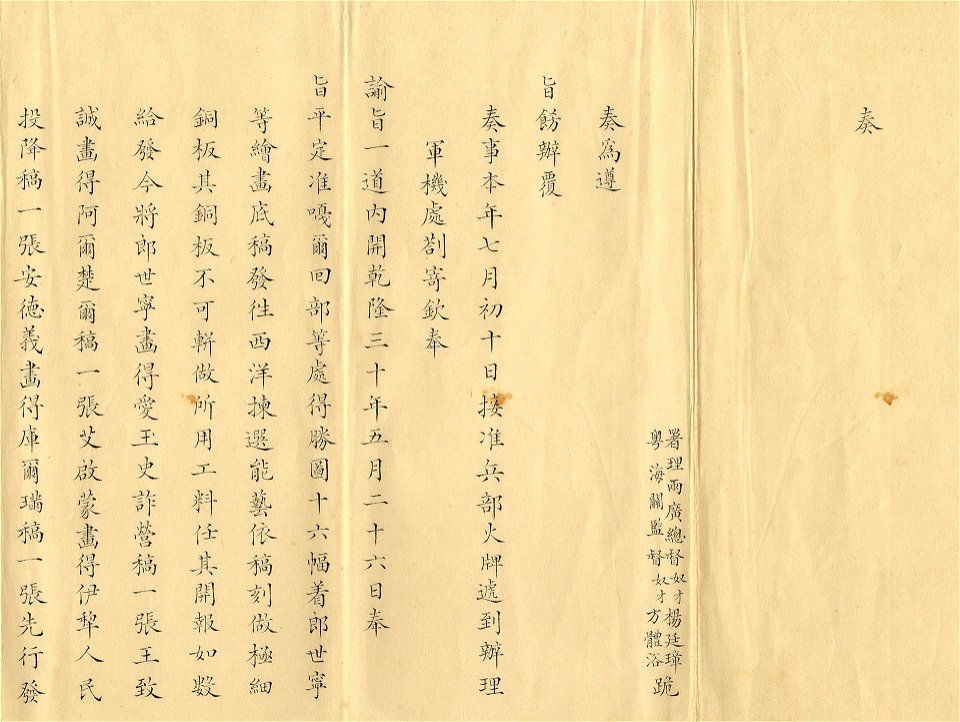 奏
署理兩廣總督奴才楊廷璋
粵海關監督奴才方體浴
跪
奏為遵
旨飭辦覆
奏事本年七月初十日接准兵部火牌遞到辦理
軍機處劄寄欽奉
諭旨一道內開乾隆三十年五月二十六日奉
旨平定准嘎爾回部等處得勝圖十六幅著郎世寧
等繪畫底稿發徃西洋揀選能藝依稿刻做極細
銅板其銅板不可輧做所用工料任其開報如數
給發今將郎世寧畫得愛玉史詐營稿一張王致
誠畫得阿爾楚爾稿一張艾啟蒙畫得伊犂人民
投降稿一張安德義畫得庫爾璊稿一張先行發